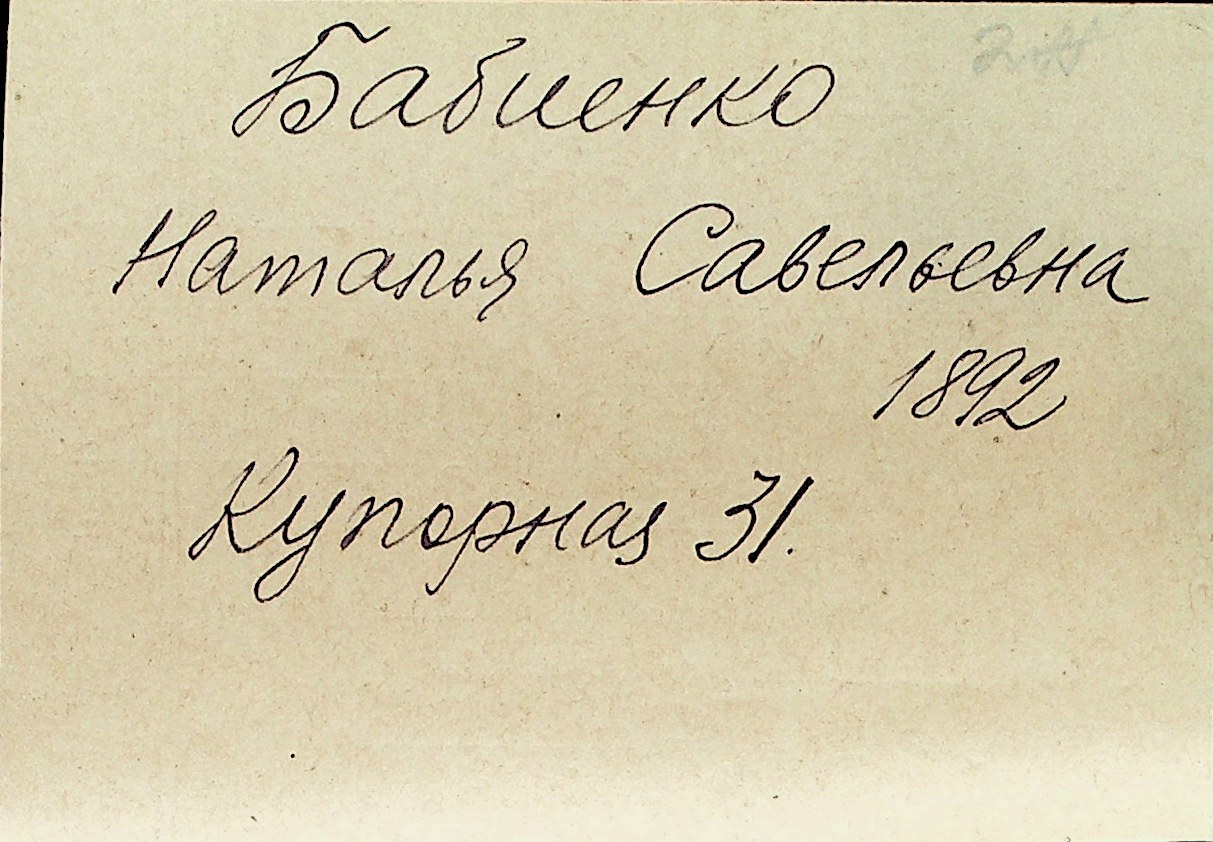 Бабиенко
Наталья Савельевна
1892
Купорная 31.